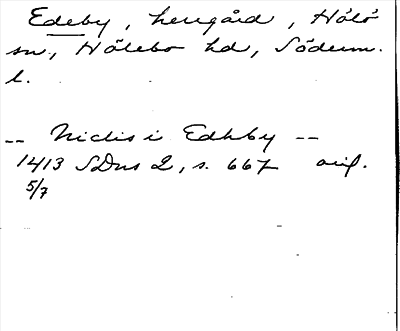 Edeby, herrgård, Hölö
sn, Hölebo hd, Söderm.
l.
-- Niclis i Edhby --
1413 SDns 2, s. 667 orig.
5/7